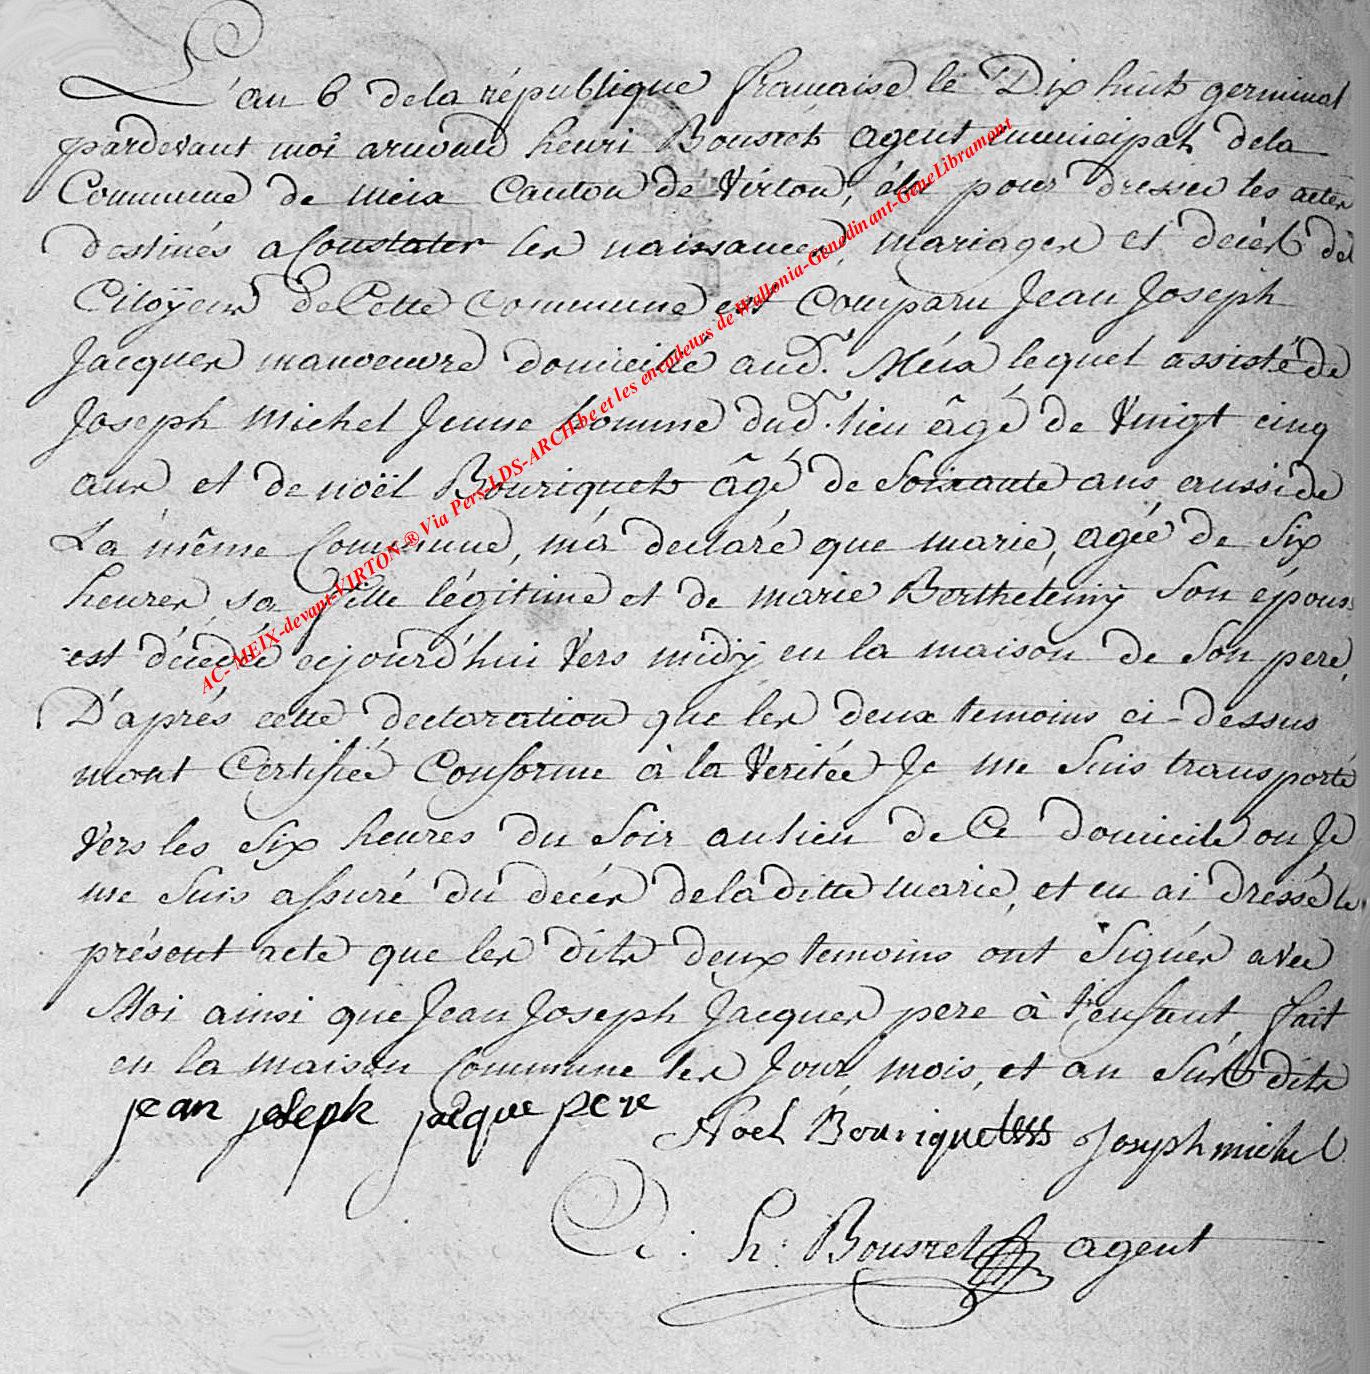 L'an 6 de la république française le Dix huit germinal
pardevant moi arnould henri Bousret agent municipal de la
Commune de meix Canton de Virton, élu pour dresser les actes
destinés a Constater les naissances, mariages et decès des
Citoÿens de Cette Commune est Comparu Jean Joseph
Jacques manoeuvre domicilié aud.t Méix lequel assisté de
Joseph Michel Jeune homme dud.t lieu âgé de Vingt cinq
ans et de noël Bouriquets âgé de Soixante ans aussi de
La même Commune, m'a declaré que marie, agée de Six
heures, sa fille légitime et de marie Berthelémÿ Son épouse
est décédé cejourd'hui Vers midÿ en la maison de Son pere,
D'aprés cette declaration que les deux temoins ci-dessus
mont Certifié Conforme à la Veritée Je me Suis transporté
Vers les Six heures du Soir au lieu de Ce domicile ou Je
me Suis assuré du decés de la ditte marie, et en ai dressé le
présent acte que les dits deux temoins ont Signés avec
Moi ainsi que Jean Joseph Jacques pere à l'enfant, fait
en la maison Commune les Jour, mois, et an Sus dits
jean joseph jacque pere Noel Bouriquets Joseph michel
A: h: Bousret agent
AC-MEIX-devant-VIRTON ® Via Pers-LDS-ARCH-be et les encodeurs de Wallonia-Genedinant-GeneLibramont